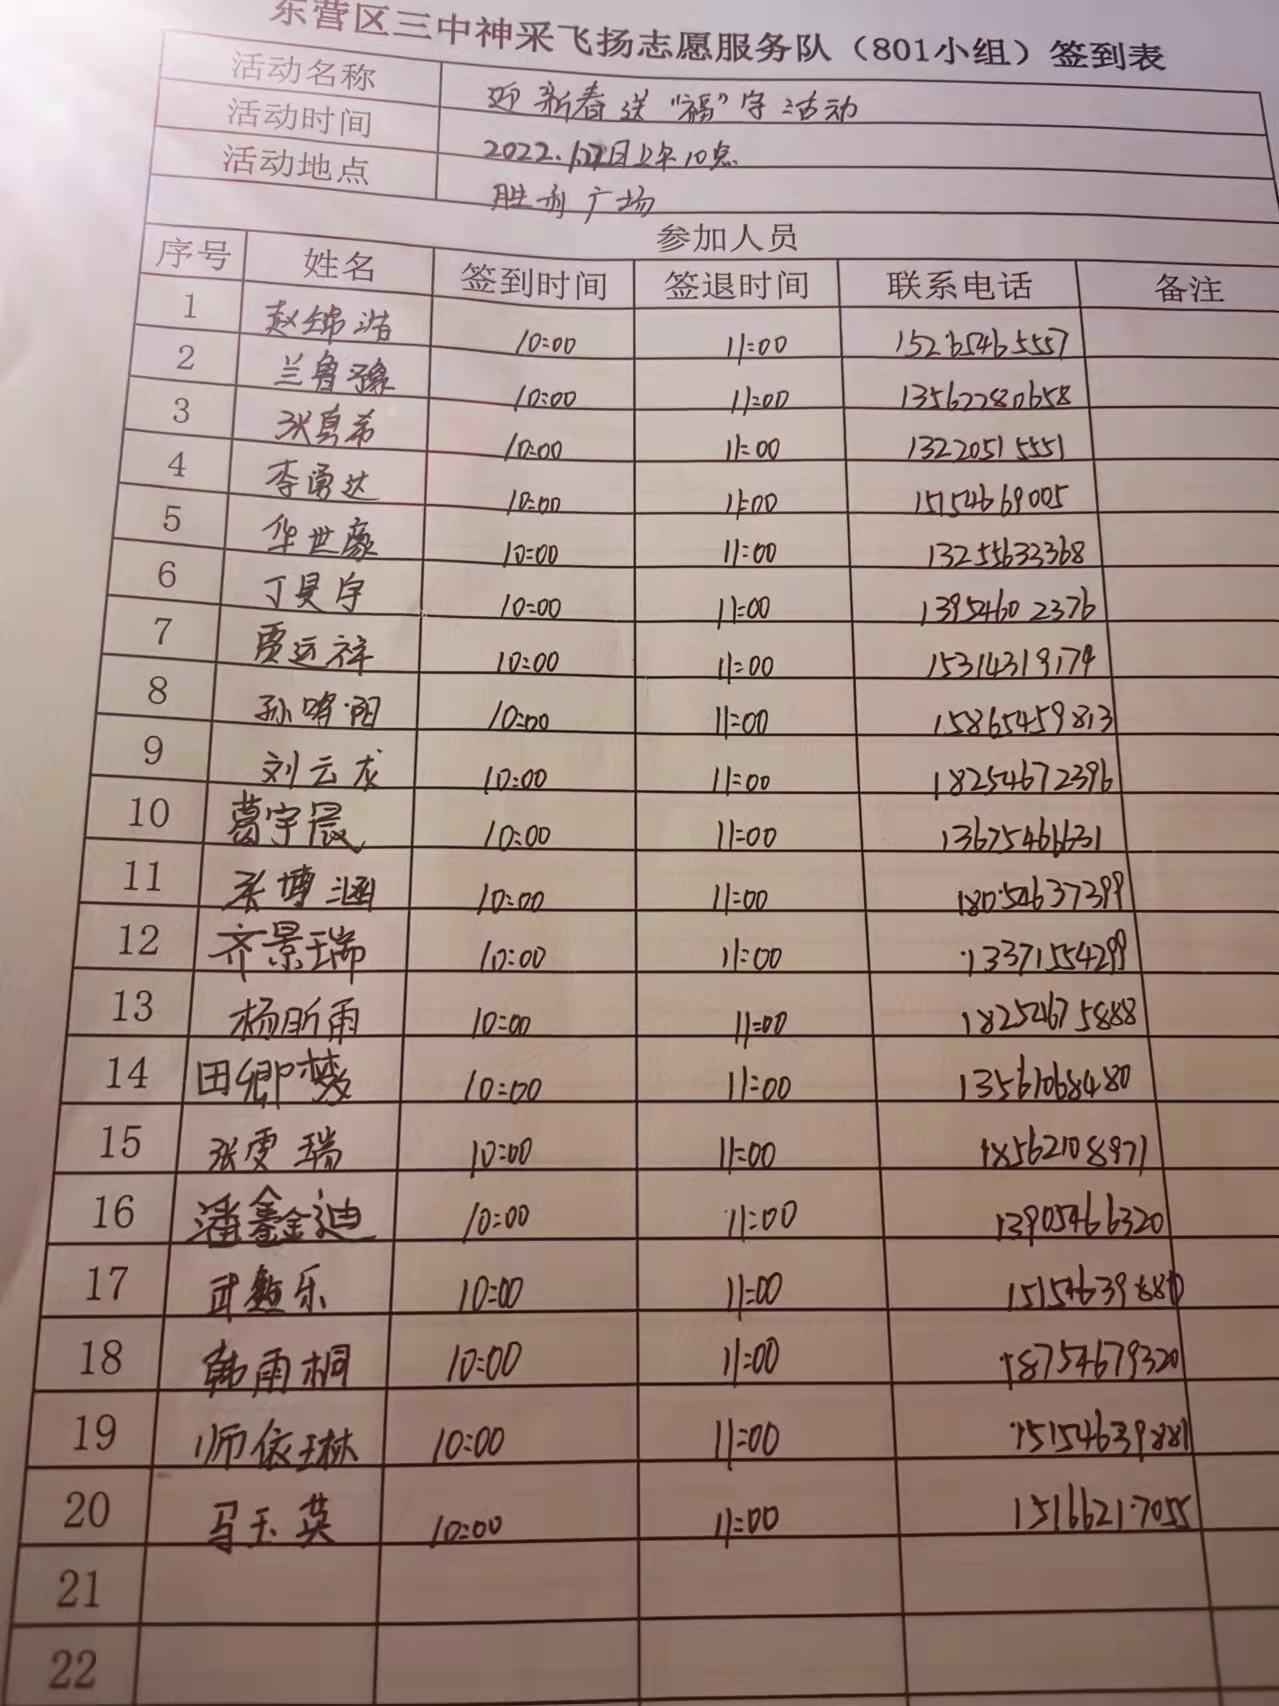 东营区三中神采飞扬志愿服务队（801小组）签到表
活动名称 迎新春送“福”字活动
活动时间 2022.1.22日上午10点
活动地点 胜利广场
参加人员
序号 姓名 签到时间 签退时间 联系电话 备注
1 赵锦浩 10:00 11:00 15265465557
2 兰鲁豫 10:00 11:00 13562280658
3 张真希 10:00 11:00 13220515551
4 李勇达 10:00 11:00 15154669005
5 华世豪 10:00 11:00 13255632368
6 丁昊宇 10:00 11:00 13954602376
7 贾运祥 10:00 11:00 15314319174
8 孙啸阳 10:00 11:00 15865459813
9 刘云龙 10:00 11:00 18254672396
10 葛宇晨 10:00 11:00 13675466631
11 张博涵 10:00 11:00 18054637399
12 齐景瑞 10:00 11:00 13371554299
13 杨昕雨 10:00 11:00 18254675888
14 田卿梦 10:00 11:00 13561068480
15 张雯瑞 10:00 11:00 18562108971
16 潘鑫迪 10:00 11:00 13905466320
17 武 乐 10:00 11:00 15154639880
18 韩雨桐 10:00 11:00 18754679320
19 师依琳 10:00 11:00 15154639881
20 马玉英 10:00 11:00 15166217055
21
22